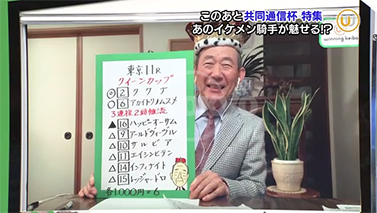 このあと共同通信杯 特集
あのイケメン騎手が魅せる!?
U
winning keiba
東京11R
クイーンカップ
◎ 2 ククナ
○ 6 アカイトリノムスメ
3連複2頭軸流
▲ 16 ハッピーオーサム
△ 9 アールドヴィーヴル
△ 10 サルビア
△ 11 エイシンヒテン
△ 14 インフィナイト
△ 15 レッジャードロ
各1,000円×6